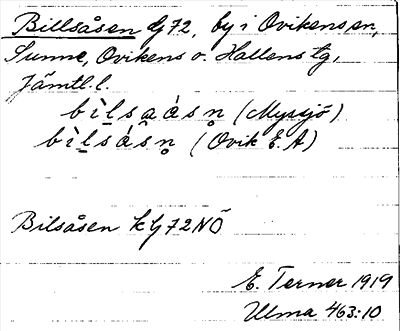 Billsåsen G 72, by i Ovikens sn,
Sunne, Ovikens o. Hallens tg,
Jämtl. l.
bìlsaásn̥ (Myssjö)
bìlsásn̥ (Ovik E.A)
Bilsåsen k G 72 NÖ
E. Terner 1919
Ulma 463:10